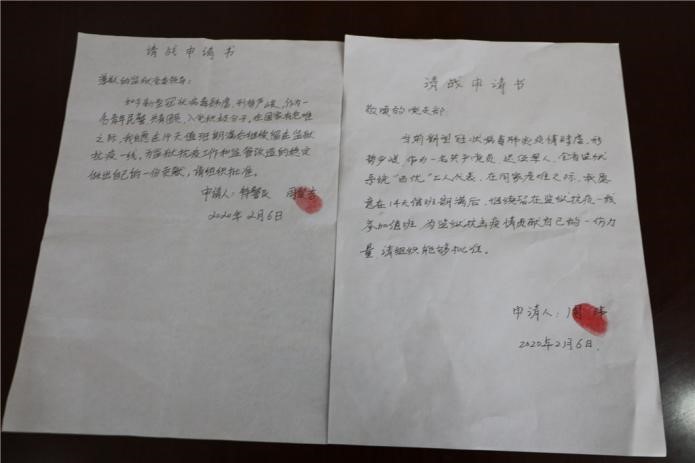 请战申请书
尊敬的监狱党委领导:
如今新型冠状病毒肆虐,形势严峻,作为一
名青年民警、共青团员、入党积极分子,在国家有危难
之际,我愿在14天值班期满后继续留在监狱
抗疫一线,为监狱抗疫工作和监管改造的稳定
做出自己的一份贡献,请组织批准。
申请人:
2020年2月6日
请战申请书
敬爱的党支部
当前新型冠状病毒肺炎疫情肆虐,形
势严峻,作为一名共产党员、退伍军人、全省监狱
系统“百优”工人代表,在国家危难之际,我愿
意在14天值班期满后,继续留在监狱抗疫一线
参加值班,为监狱抗击疫情贡献自己的一份力
量,请组织能够批准。
申请人:周
2020年2月6日.